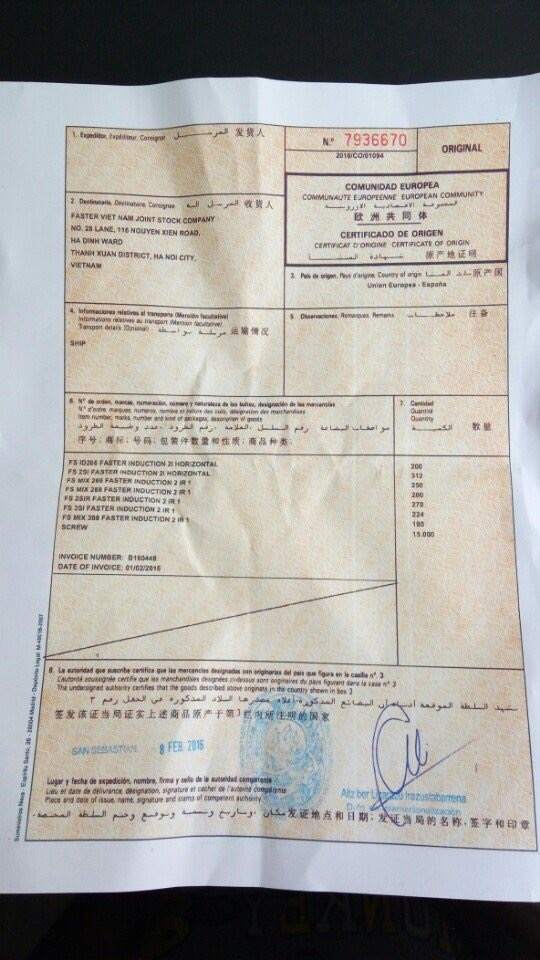 1. Expedidor, Expéditeur, Consignor المرسل 发货人
N.º 7936670
2016/CO/01094
ORIGINAL
COMUNIDAD EUROPEA
COMMUNAUTE EUROPEENNE EUROPEAN COMMUNITY
المجموعة الاقتصادية الاوروبية
欧洲共同体
CERTIFICADO DE ORIGEN
CERTIFICAT D'ORIGINE CERTIFICATE OF ORIGIN
شهادة المنشأ 原产地证明
2. Destinatario, Destinataire, Consignee المرسل اليه 收货人
FASTER VIET NAM JOINT STOCK COMPANY
NO. 28 LANE, 116 NGUYEN XIEN ROAD,
HA DINH WARD
THANH XUAN DISTRICT, HA NOI CITY,
VIETNAM
3. País de origen, Pays d'origine, Country of origin بلد المنشأ 原产国
Union Europea - España
4. Informaciones relativas al transporte (Mención facultativa)
Informations relatives au transport (Mention facultative)
Transport details (Optional) مرسلة بواسطة 运输情况
SHIP
5. Observaciones, Remarques, Remarks ملاحظات 注备
6. N.º de orden, marcas, numeración, número y naturaleza de los bultos, designación de las mercancías
N.º d'ordre, marques, numéros, nombre et nature des colis, désignation des marchandises
Item number, marks, number and kind of packages, description of goods
序号; 商标; 号码; 包装件数量和性质; 商品种类;
7. Cantidad
Quantité
Quantity
الكمية 数量
FS ID266 FASTER INDUCTION 2I HORIZONTAL 200
FS 2SI FASTER INDUCTION 2I HORIZONTAL 312
FS MIX 266 FASTER INDUCTION 2 IR 1 250
FS MIX 288 FASTER INDUCTION 2 IR 1 200
FS 2SIR FASTER INDUCTION 2 IR 1 270
FS 3SI FASTER INDUCTION 2 IR 1 224
FS MIX 388 FASTER INDUCTION 2 IR 1
SCREW 15.000
INVOICE NUMBER: B160449
DATE OF INVOICE: 01/02/2016
8. La autoridad que suscribe certifica que las mercancías designadas son originarias del país que figura en la casilla n.º 3
L'autorité soussignée certifie que les marchandises désignées ci-dessus sont originaires du pays figurant dans la case n.º 3
The undersigned authority certifies that the goods described above originate in the country shown in box 3
签发该证当局证实上述商品原产于第3栏内所注明的国家
SAN SEBASTIAN, 8 FEB. 2016
Lugar y fecha de expedición, nombre, firma y sello de la autoridad competente
Lieu et date de délivrance, désignation, signature et cachet de l'autorité compétente
Place and date of issue, name, signature and stamp of competent authority
发证地点和日期; 发证当局的名称, 签字和印章